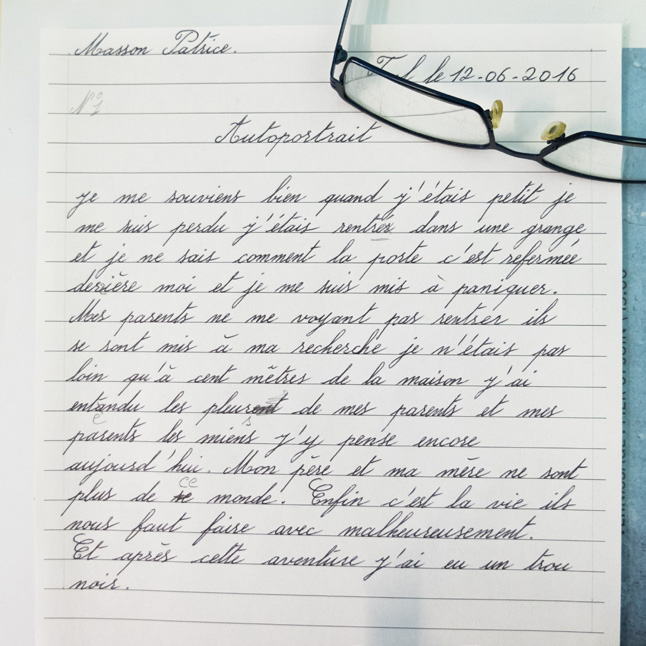 Masson Patrice.
le 12-06-2016
N°1
Autoportrait
je me souviens bien quand j'étais petit je
me suis perdu j'étais rentrez dans une grange
et je ne sais comment la porte c'est refermée
derière moi et je me suis mis à paniquer.
Mes parents ne me voyant pas rentrer ils
se sont mis à ma recherche je n'étais pas
loin qu'à cent mètres de la maison j'ai
entendu les pleurs de mes parents et mes
parents les miens j'y pense encore
aujourd'hui. Mon père et ma mère ne sont
plus de ce monde. Enfin c'est la vie ils
nous faut faire avec malheureusement.
Et après cette aventure j'ai eu un trou
noir.